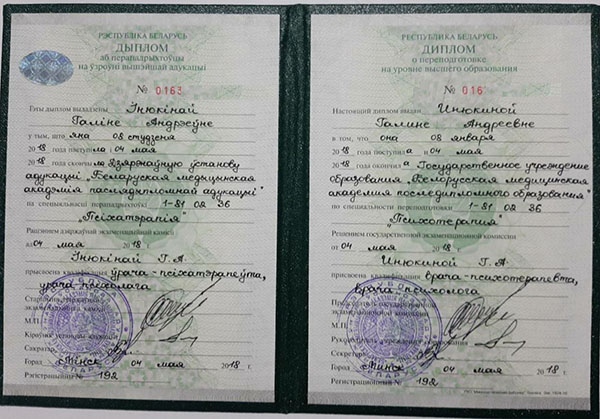 РЭСПУБЛІКА БЕЛАРУСЬ
ДЫПЛОМ
аб перападрыхтоўцы
на ўзроўні вышэйшай адукацыі
№ 0163
Гэты дыплом выдадзены Інюкінай
Галіне Андрэеўне
у тым, што яна 08 студзеня
2018 года паступіла 04 мая
2018 года скончыла Дзяржаўную ўстанову
адукацыі „Беларуская медыцынская
акадэмія паслядыпломнай адукацыі"
па спецыяльнасці перападрыхтоўкі 1-81 02 36
„Псіхатэрапія"
Рашэннем дзяржаўнай экзаменацыйнай камісіі
ад 04 мая 2018 г.
Інюкінай Г.А.
прысвоена кваліфікацыя ўрача-псіхатэрапеўта,
урача-псіхолага
Старшыня дзяржаўнай
экзаменацыйнай камісіі
М.П.
Кіраўнік установы адукацыі
Сакратар
Горад Мінск 04 мая 2018 г.
Рэгістрацыйны № 192
РЕСПУБЛИКА БЕЛАРУСЬ
ДИПЛОМ
о переподготовке
на уровне высшего образования
№ 016
Настоящий диплом выдан Инюкиной
Галине Андреевне
в том, что она 08 января
2018 года поступила 04 мая
2018 года окончила Государственное учреждение
образования „Белорусская медицинская
академия последипломного образования"
по специальности переподготовки 1-81 02 36
„Психотерапия"
Решением государственной экзаменационной комиссии
от 04 мая 2018 г.
Инюкиной Г.А.
присвоена квалификация врача-психотерапевта,
врача-психолога
Председатель государственной
экзаменационной комиссии
М.П.
Руководитель учреждения образования
Секретарь
Город Минск 04 мая 2018 г.
Регистрационный № 192